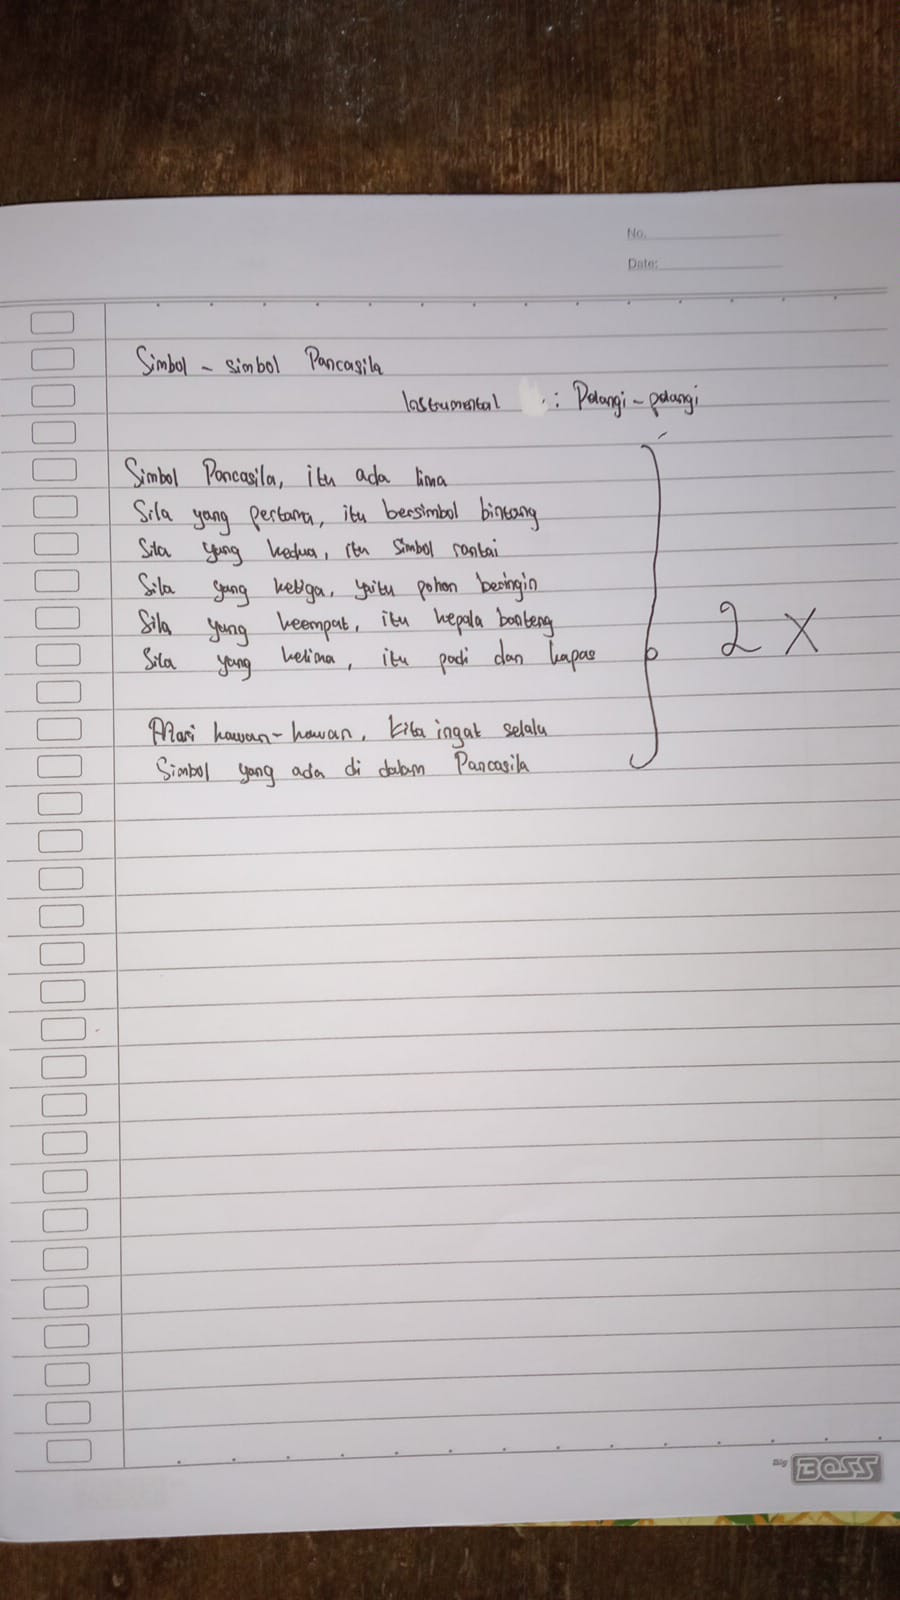 No.
Date:
Simbol - simbol Pancasila
Instrumental : Pelangi - pelangi
Simbol Pancasila, itu ada lima
Sila yang pertama, itu bersimbol bintang
Sila yang kedua, itu simbol rantai
Sila yang ketiga, yaitu pohon beringin
Sila yang keempat, itu kepala banteng
Sila yang kelima, itu padi dan kapas
2 X
Mari kawan-kawan, kita ingat selalu
Simbol yang ada di dalam Pancasila
Big BOSS